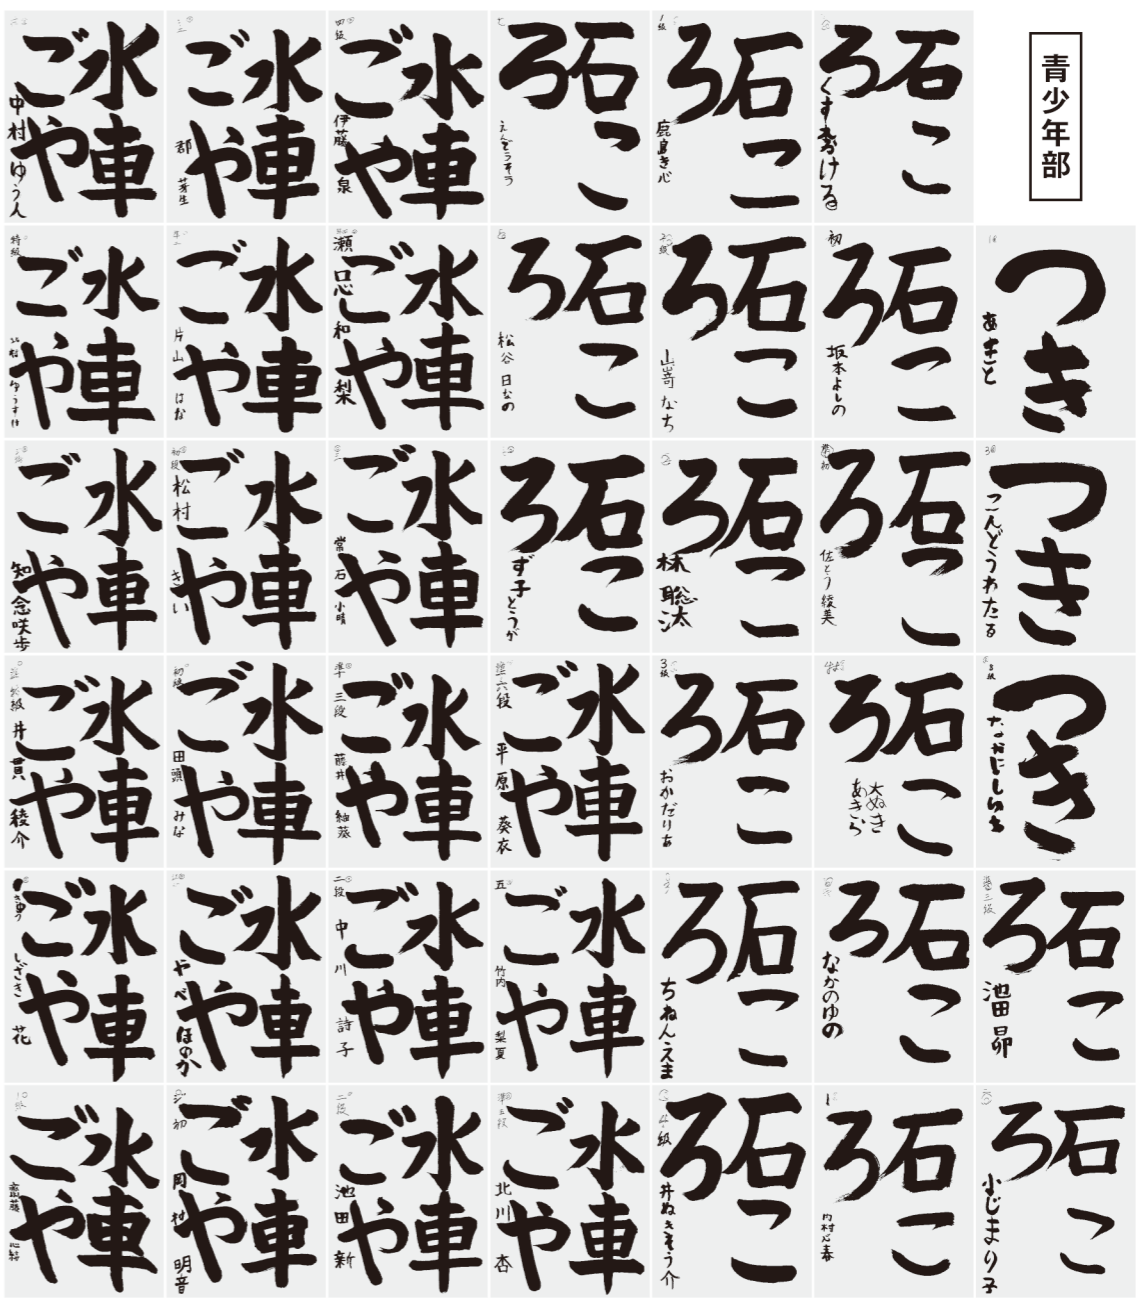 青少年部
石ころ
くすもける
石ころ
1級
鹿島き心
石ころ
えんどうそら
水車ごや
四級
伊藤泉
水車ごや
郡芽生
水車ごや
中村ゆう人
つき
あきと
石ころ
初
坂本よしの
石ころ
山嵜なち
石ころ
松谷日なの
水車ごや
和梨
水車ごや
片山はな
水車ごや
特級
つき
こんどうわたる
石ころ
準初
佐とう綾美
石ころ
林聡汰
石ころ
ず子とうが
水車ごや
常石小晴
水車ごや
初段
松村きい
水車ごや
知念咲歩
つき
石ころ
大ぬきあきら
石ころ
3級
おかだりお
水車ごや
準六段
平原葵衣
水車ごや
準三段
藤井紬葵
水車ごや
初段
田頭みな
水車ごや
井貫綾介
石ころ
準三級
池田昴
石ころ
なかのゆの
石ころ
ちねんえま
水車ごや
五
竹内梨夏
水車ごや
二段
中川詩子
水車ごや
やべほのか
水車ごや
しざき花
石ころ
小じまり子
石ころ
内村心春
石ころ
4級
井ぬきそう介
水車ごや
準五段
北川杏
水車ごや
二段
池田新
水車ごや
初
岡村明音
水車ごや
齋藤心結